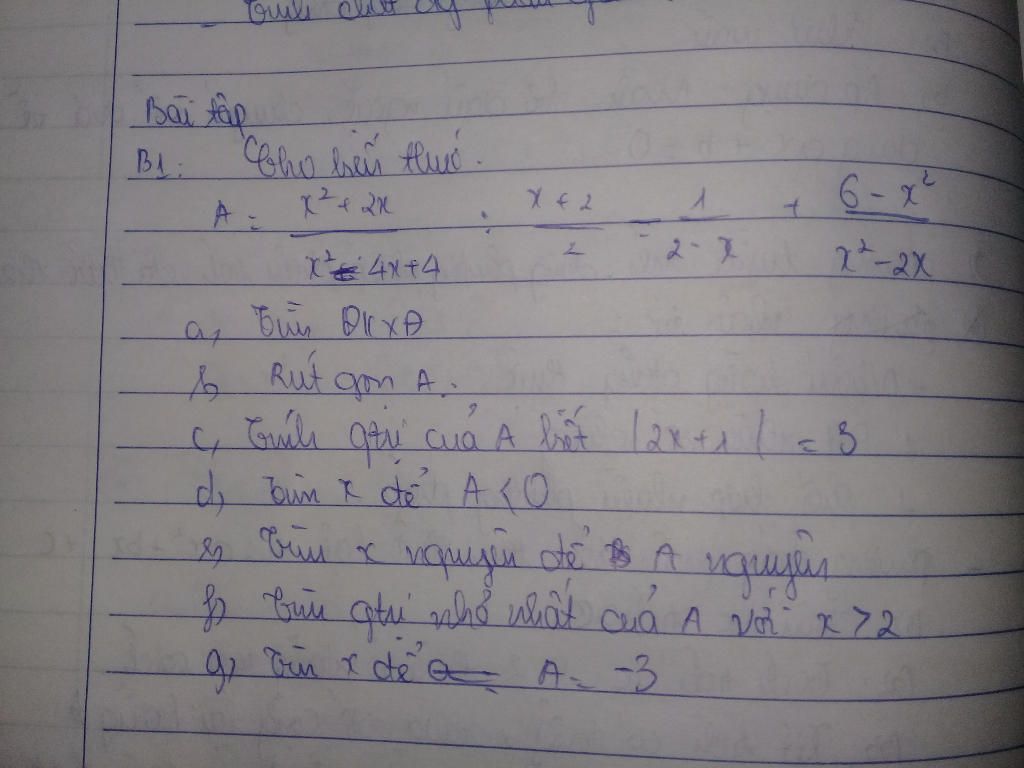 Tính chất
Bài tập
B1: Cho biểu thức.
A = \frac{x² + 2x}{x² - 4x + 4} : \frac{x + 2}{2} - \frac{1}{2 - x} + \frac{6 - x²}{x² - 2x}
a, Tìm ĐKXĐ
b, Rút gọn A.
c, Tính gtrị của A biết |2x + 1| = 3
d, Tìm x để A < 0
e, Tìm x nguyên để A nguyên
f, Tìm gtrị nhỏ nhất của A với x > 2
g, Tìm x để A = -3